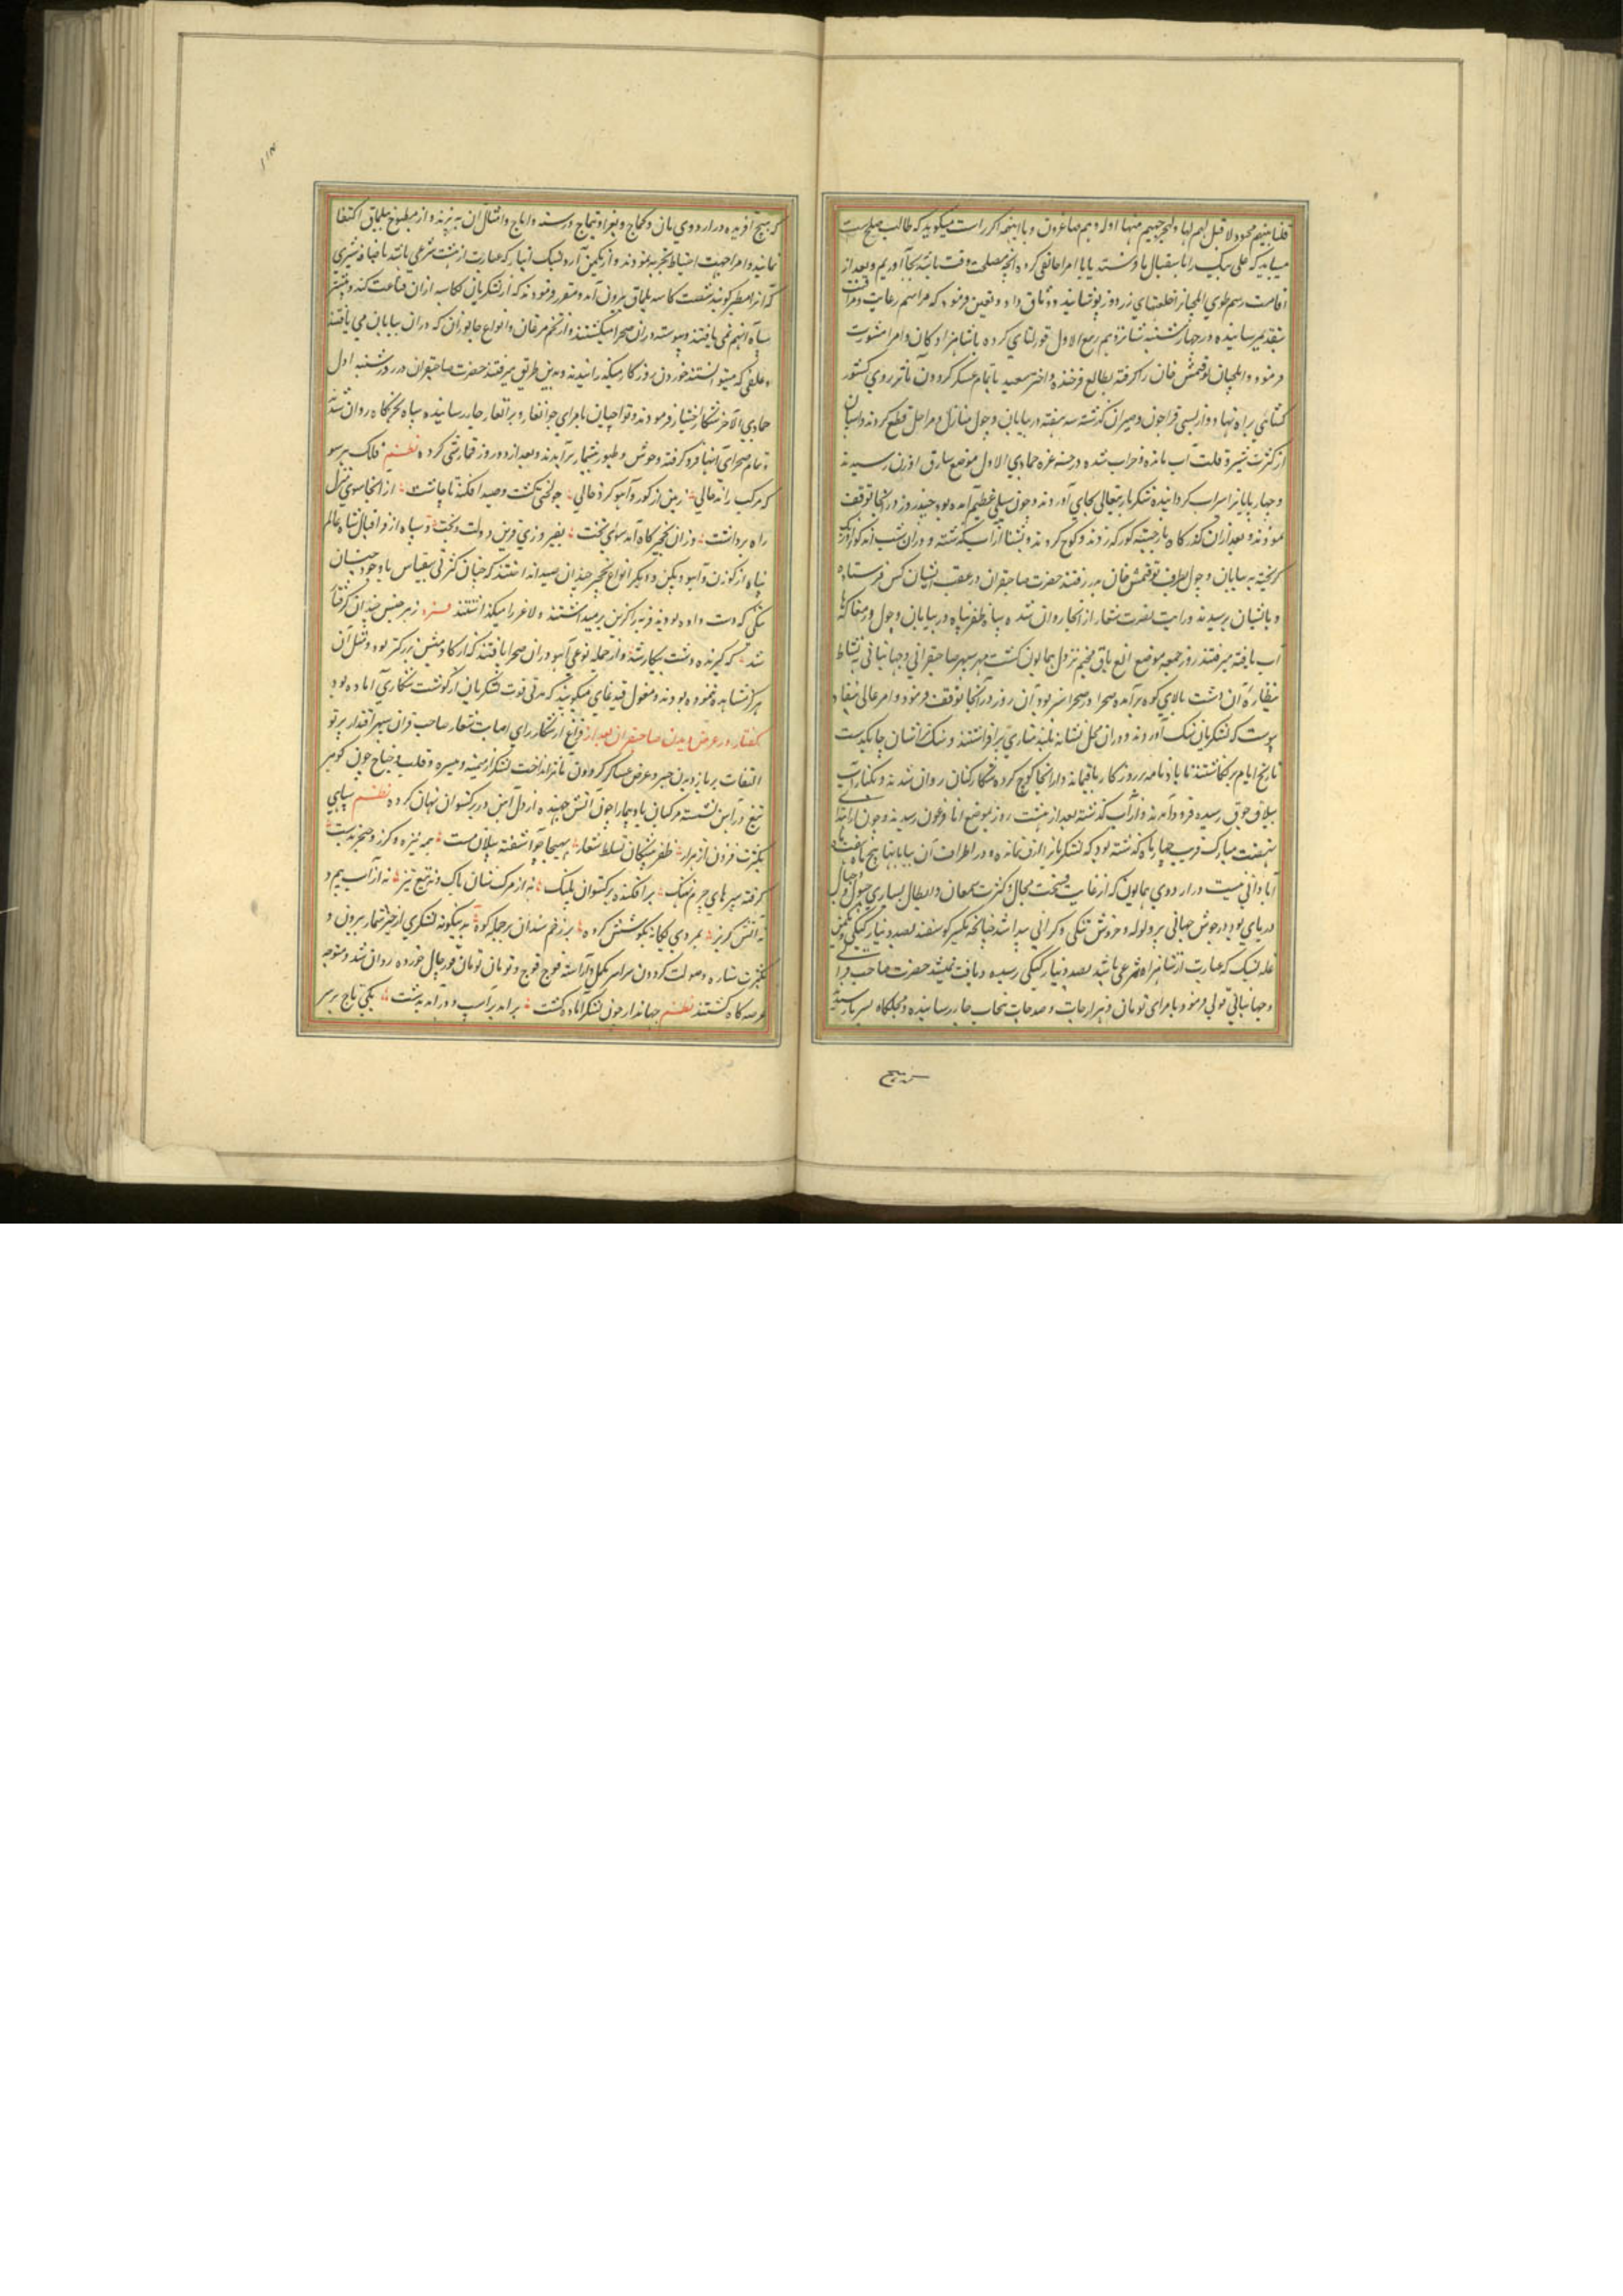 فلنأتینهم بجنود لا قبل لهم بها ولنخرجنهم منها اذلة وهم صاغرون و با اینهمه اگر راست میگوید که طالب صلح است
میباید که علی بیک را باستقبال ما فرستد تا با امرا جانقی کرده انچه مصلحت وقت باشد بجا آوریم و بعد از
اقامت رسم طوی ایلچیانرا خلعتهای زردوز پوشانیده و وثاق داد و تعیین فرمود که مراسم رعایت و مراقبت
بتقدیم رسانیده و در چهارشنبه شانزدهم ربیع الاول قورلتای کرده با شاهزادگان و امرا مشورت
فرمود و ایلچیان توقتمش خان را گرفته بطالع فرخنده و اختر سعید با تمام عسکر گردون مآثر روی کشور
کشائی براه نهاد و از یسی و قراجون و صیران گذشته سه هفته در بیابان و چول منازل و مراحل قطع کردند و اسبان
از کثرت سیر و قلت آب مانده و خراب شده در غره جمادی الاول موضع سارق اوزن رسیدند
و چهارپایانرا سیراب کردانیده شکر باریتعالی بجای آوردند و چون سیلی عظیم آمده بود چند روز در انجا توقف
نمودند و بعد از ان گذرگاه باز جسته کورکه زدند و کوچ کردند و بشنا از اب گذشته و در ان شب
گریخته به بیابان و چول بطرف توقتمش خان بدر رفتند حضرت صاحبقران در عقب ایشان کس فرستاده
و بایشان نرسیدند و رایت نصرت شعار از انجا روان شده و سپاه ظفر پناه در بیابان و چول در مغاکها
آب یافته میرفتند روز جمعه موضع مخیم نزول همایون گشت مهر سپهر صاحبقرانی و جهانبانی به نشاط
نظاره آن دشت بالای کوه برآمده صحرا در صحرا سبز بود آن روز در انجا توقف فرمود و امر عالی بنفاد
پیوست که لشکریان سنگ آوردند و در ان محل نشانه بلند مناری برافراشتند و سنگ تراشان چابکدست
تاریخ ایام بر نگاشتند تا یادنامه بر روزگار باقیماند و از انجا کوچ کرده شکارکنان روان شدند و بکنار آب
یلان جوق رسیده فرود آمدند و از آب گذشته بعد از هشت روز بموضع اناقرغون رسیدند و چون از ابتدا
نهضت مبارک قریب چهار ماه گذشته بود که لشکریانرا ازق نمانده و در اطراف آن بیابانها پنج ماهه
آبادانی نیست در اردوی همایون که از غایت فسحت مجال و کثرت شجعان و ابطال بسان
دریای بود در جوش جهانی پر ولوله و خروش تنگی و گرانی پیدا شد چنانچه یکسر گوسفند بصد دینار کپکی و یکمن
غله که عبارت از شانزده من شرعی باشد بصد دینار کپکی رسیده و یافت نمیشد حضرت صاحبقرانی
و جهانبانی قولی فرمود با امرای تومان و هزارجات و صدجات بخاب جار رسانیده و مجلکاه سپارند
که هیچ
که هیچ آفریده در اردوی نان و کماج و بغرا و تتماج و رشته و اماج و امثال آن نپزند و از مطبوخ ببلماق اکتفا
نمایند و امرا جهت احتیاط تجربه نمودند و از یکمن آرد بسنک انبار که عبارت از هشت من شرعی باشد با
که آنرا مطر گویند شصت کاسه بلماق بیرون آمد و مقرر فرمودند که از لشکریان بیک کاسه از ان قناعت کنند و بیشتر
سپاه انهم نمی یافتند و پیوسته در ان صحرا میگشتند و از تخم مرغان و انواع جانوران که در ان بیابان می یافتند
و علفی که میتوانستند خوردن روزگار میگذرانیدند و بدین طریق میرفتند حضرت صاحبقران در روز شنبه اول
جمادی الآخر شکار اختیار فرمودند و تواچیان با امرای جوانغار و برانغار جار رسانیده سپاه بجرگاه روان شدند
و تمام صحرای آنها فرو گرفته وحوش و طیور بیشمار براندند و بعد از دو روز قمارمیشی کرده نظم فلک بر سو
که مرکب راند حالی زمین از گور و آهو کرد خالی چو لختی گشت و صید افکند تا چاشت از انجا سوی منزل
راه برداشت وزان نخچیرگاه آمد سوی تخت بفیروزی قرین دولت و بخت و سپاه از فر اقبال شاه عالم
پناه از گوزن و آهو و پکن و دیگر انواع نخچیر چندان صید انداختند که چنان کثرتی بیقیاس با وجود چنان
تنگی که دست داده بود فربه را گزین برمیداشتند و لاغر را میگذاشتند ز هر جنس چندان گرفتار
شد که گیرنده دست بیکار شد و از جمله نوعی آهو در ان صحرا یافتند که از گاومیش بزرگتر بود و مثل آن
هرگز مشاهده ننموده بودند و مغول قندغای میگویند که مدتی قوت لشکریان از گوشت شکاری آماده بود
گفتار در عرض دیدن صاحبقران بعد از فراغ از شکار رای اصابت شعار صاحب قران سپهر اقتدار پرتو
التفات بر بازدیدن جبر و عرض عساکر گردون مآثر انداخت لشکر از میمنه و میسره و قلب و جناح چون گوهر
تیغ در آهن نشسته مرکبان بادپیما را چون آتش جهنده از دل آهن در برگستوان نهان کرده نظم سپاهی
بکثرت فزون از هزار ظفر پیشگان تسلط شعار بهیجا چو آشفته پیلان مست همه نیزه و گرز و خنجر بدست
گرفته سپرهای چرم نهنگ برافکنده برگستوان پلنگ نه از مرگ شان باک و نه تیغ تیز نه از آب بیم و
نه آتش گریز بمردی یکایک بکوشش گروه بر زخم سندان بر حمله کوه بدینگونه لشکری از حیز شمار بیرون و
بکثرت ستاره و صولت گردون سراسر مکمل و آراسته فوج فوج و تومان تومان مورچال خورده روان شد و متوجه
عرصه گاه گشتند نظم جهاندار چون لشکر آماده گشت برآمد بر اسپ و درآمد بدشت یکی تاج بر سر